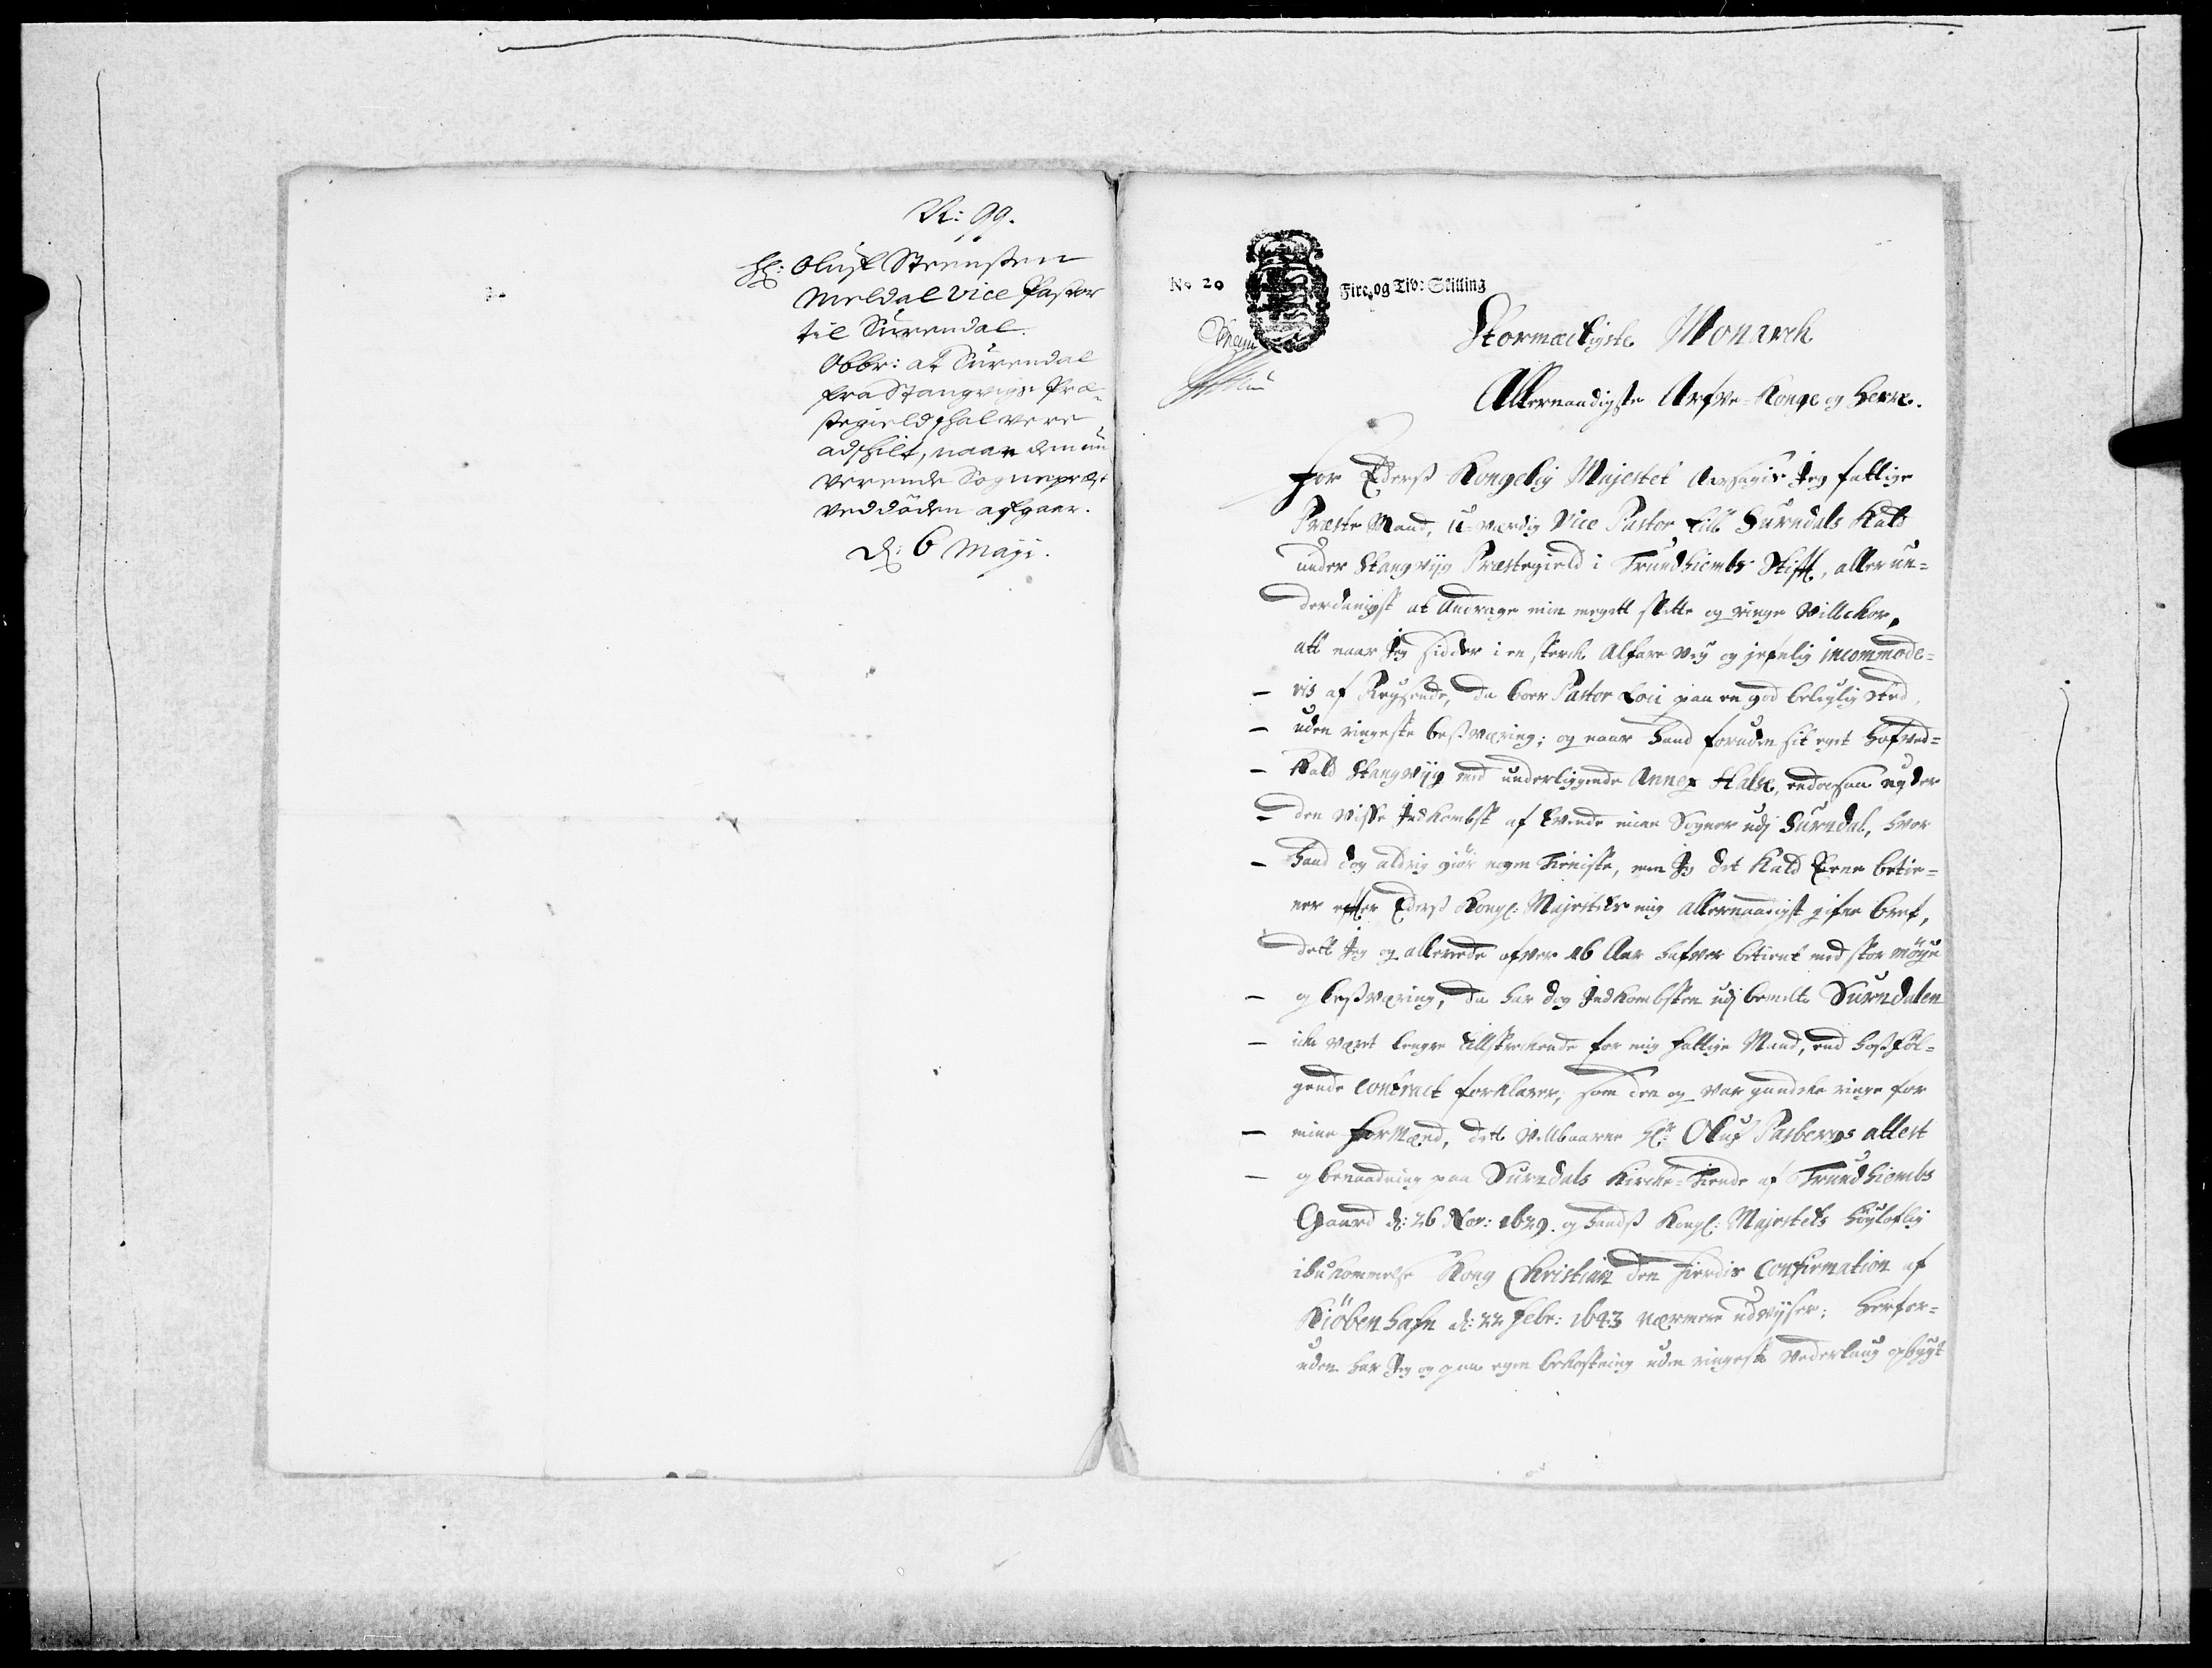 N: 99.
Hr: Oluf Steensøen
Meldal Vice Pastor
til Surendal.
Obbr: at Surendal
fra Stangvigs Præ-
stegield skal være
adskilt, naar den nu
værende Sogneprest
ved døden afgaar.
d: 6 Maji.
No 20
Fire og Tiv: Skilling
Stormæctigste Monarch
Allernaadigste Arfve-Konge og Herre.
For Eders Kongelig Majestet Aarsagis Jeg fattige
Præste Mand, u-værdig Vice Pastor till Surndals Kald
under Stangvijg Præstegield i Trundhiembs Stift, allerun-
derdanigst at Andrage min megett slette og ringe Villchor,
att naar Jeg sidder i en sterck Alfare Vey og jefnlig incommode-
ris af Reysende, da boer Pastor Loci paa en god beleylig sted,
uden ringeste besværing; og naar Hand foruden sit eget Hofved-
Kald Stangvijg med underliggende Annex Halse, endoesaa nyder
den visse Indkombst af tvende mine Sogner udj Surndal, hvor
Hand dog aldrig giør nogen tieniste, men Jeg det Kald Eene betie-
ner effter Eders Kongl: Majestets mig allernaadigst gifne bref,
dett Jeg og allerede ofver 16 Aar hafver betient med stor møye
og besværing, da har dog Indkombsten udj bemelte Surndalen
icke været lengre tillstreckende for mig fattige Mand, end hosføl-
gende contract forklarer, som den og var gandske ringe for
mine Formænd, dett Velbaarne Hr: Oluf Parbergs attest
og benaadning paa Surndals Kircke-Tiende af Trundhiembs
Gaard d: 26 Nov: 1629. og Hands Kongl: Majestets Høyloflig
ihukommelse Kong Christian den Fierdis Confirmation af
Kiöbenhafn d: 22 Febr: 1643 nærmere udvijser: Herfor-
uden har Jeg og paa egen bekostning uden ringeste Vederlaug opbygt